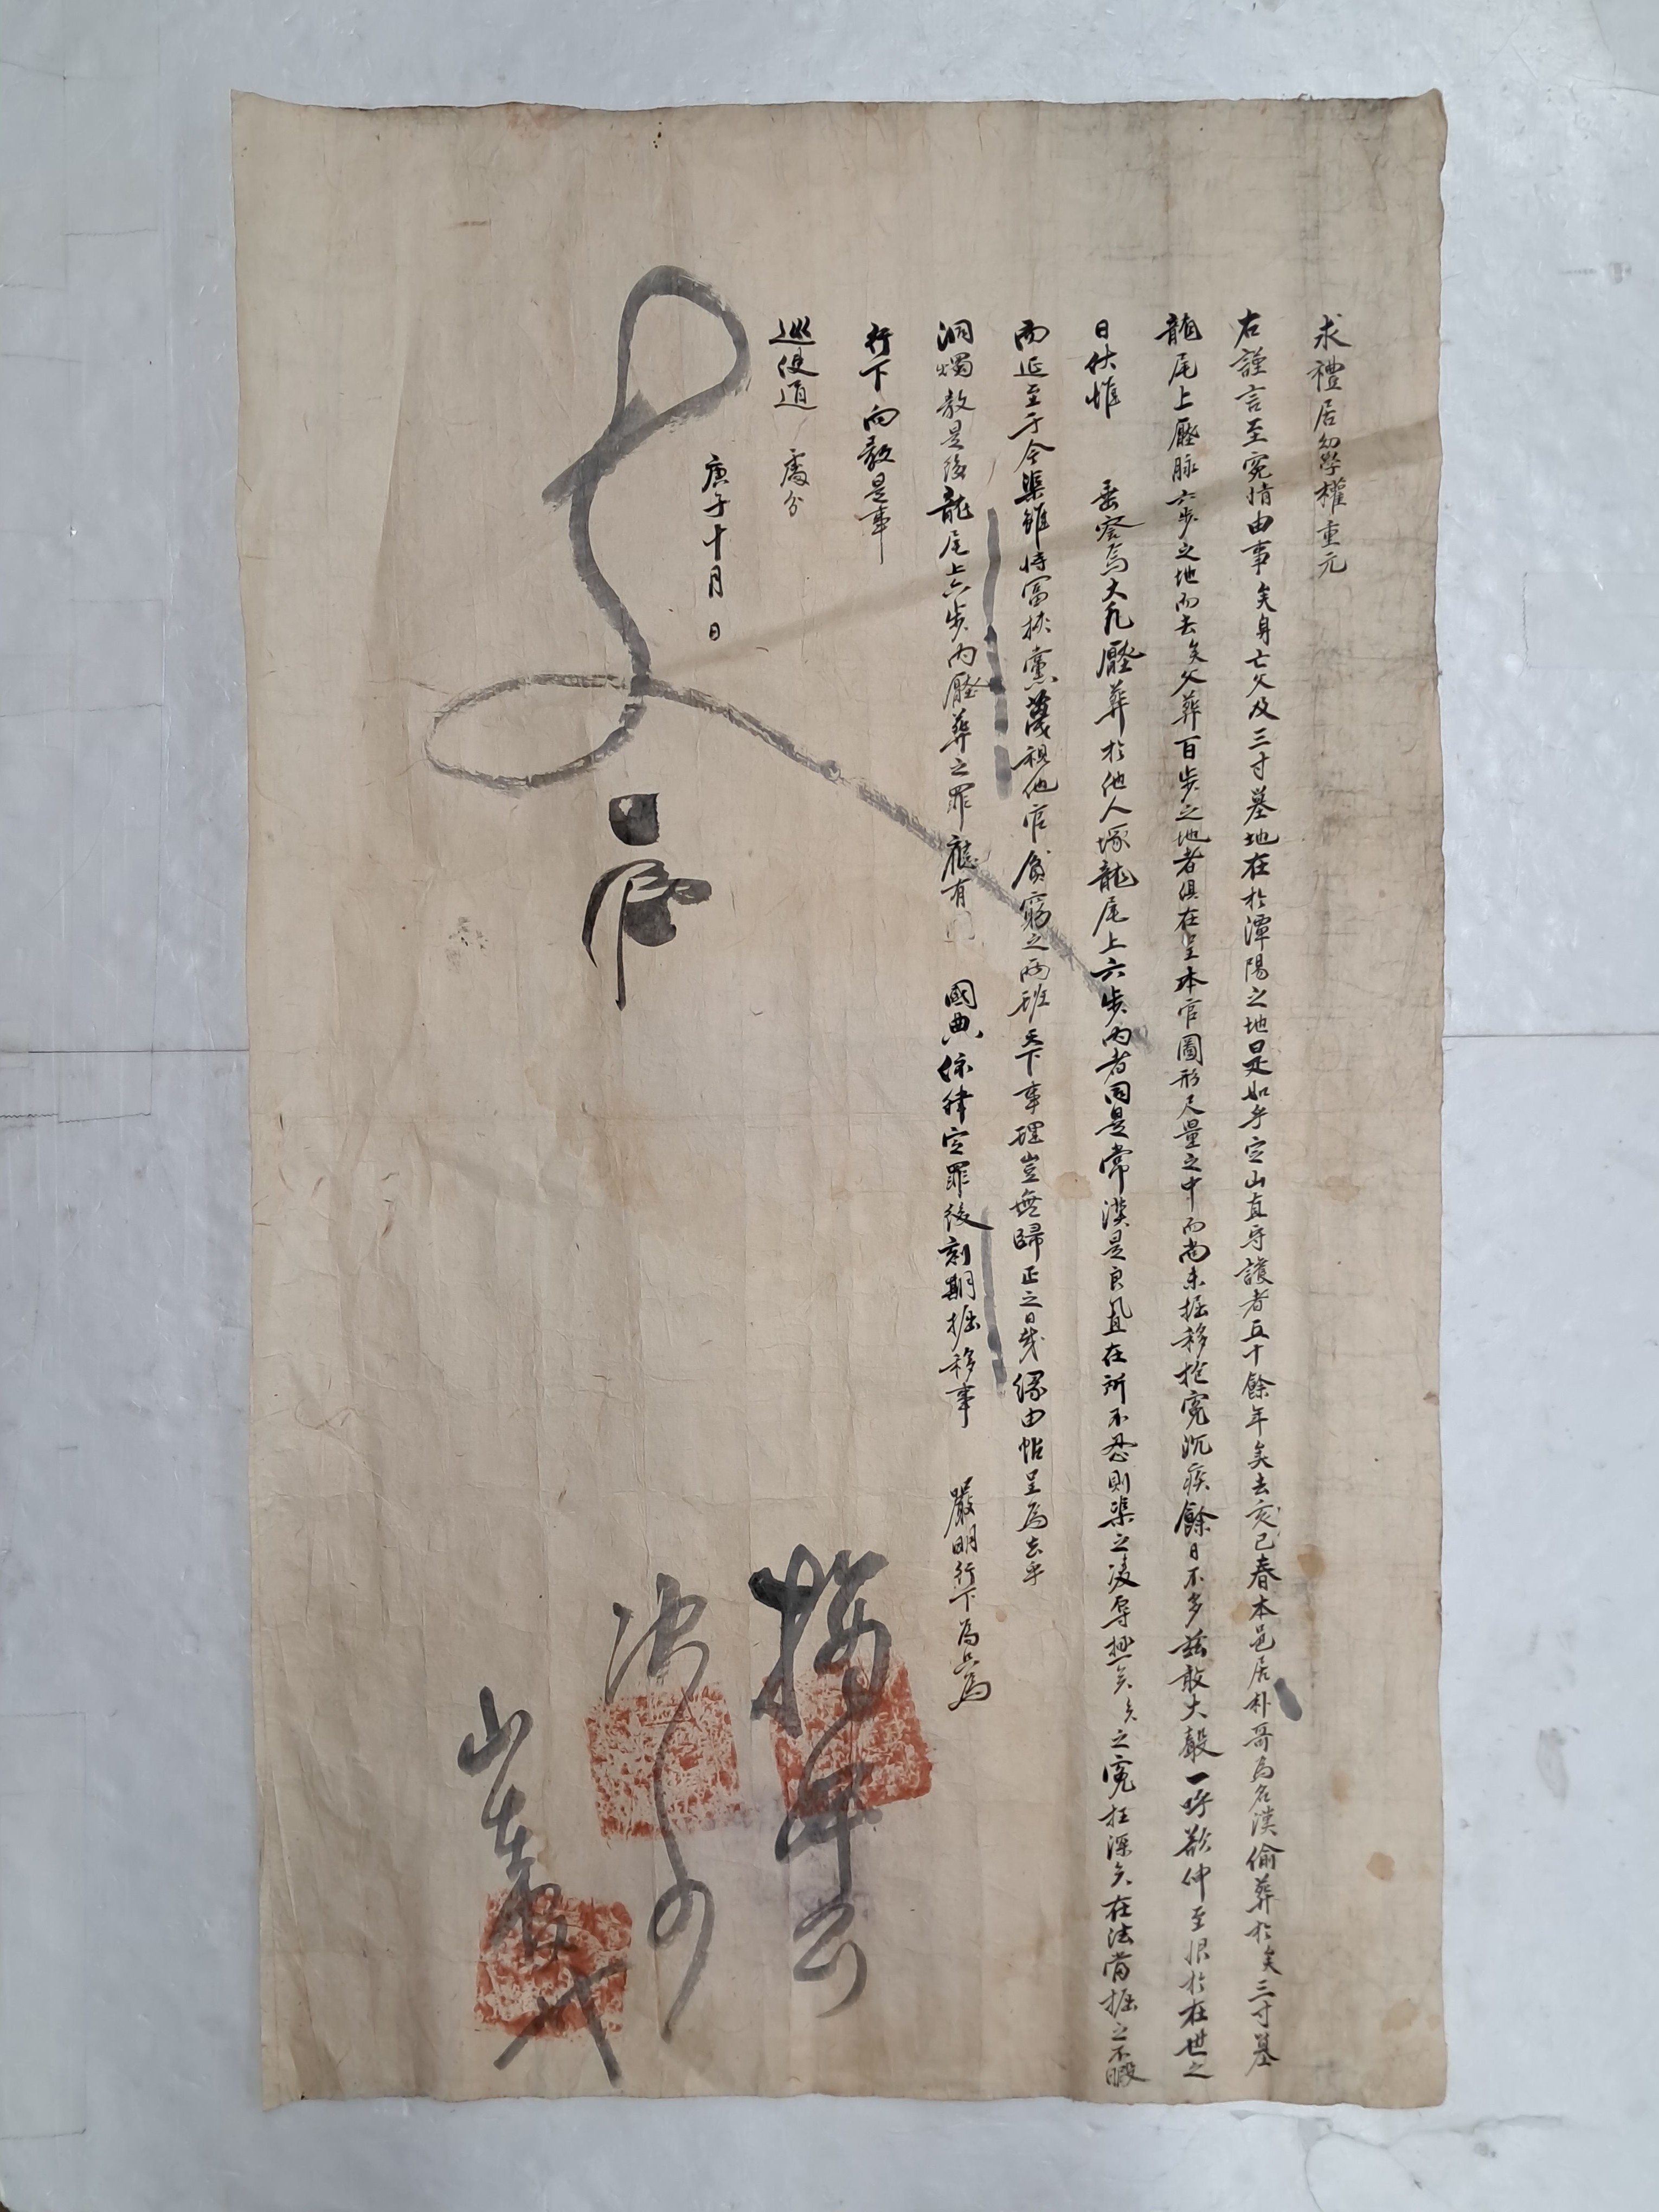 求禮居幼學權重元
右謹言至寃情由事矣身亡父及三寸墓地在於潭陽之地是如乎定山直守護者五十餘年矣去亥已春本邑居朴哥爲名漢偷葬於矣三寸墓
龍尾上壓脉六步之地而去矣父葬百步之地者俱在呈本官圖形尺量之中而尚未掘移抱寃沉疾餘日不多玆敢大聲一呼欲伸至恨於在世之
日伏惟 垂察焉大凡壓葬於他人塚龍尾上六步內者同是常漢是良置在所不忍則渠之凌辱極矣矣之寃枉深矣在法當掘之不暇
而延至于今渠雖恃富挾黨蔑視他官貧窮之兩班天下事理豈無歸正之日哉緣由帖呈爲去乎
洞燭敎是後龍尾上六步內壓葬之罪應有 國典依律定罪後刻期掘移事 嚴明行下爲只爲
行下向敎是事
巡使道 處分
庚子十月 日